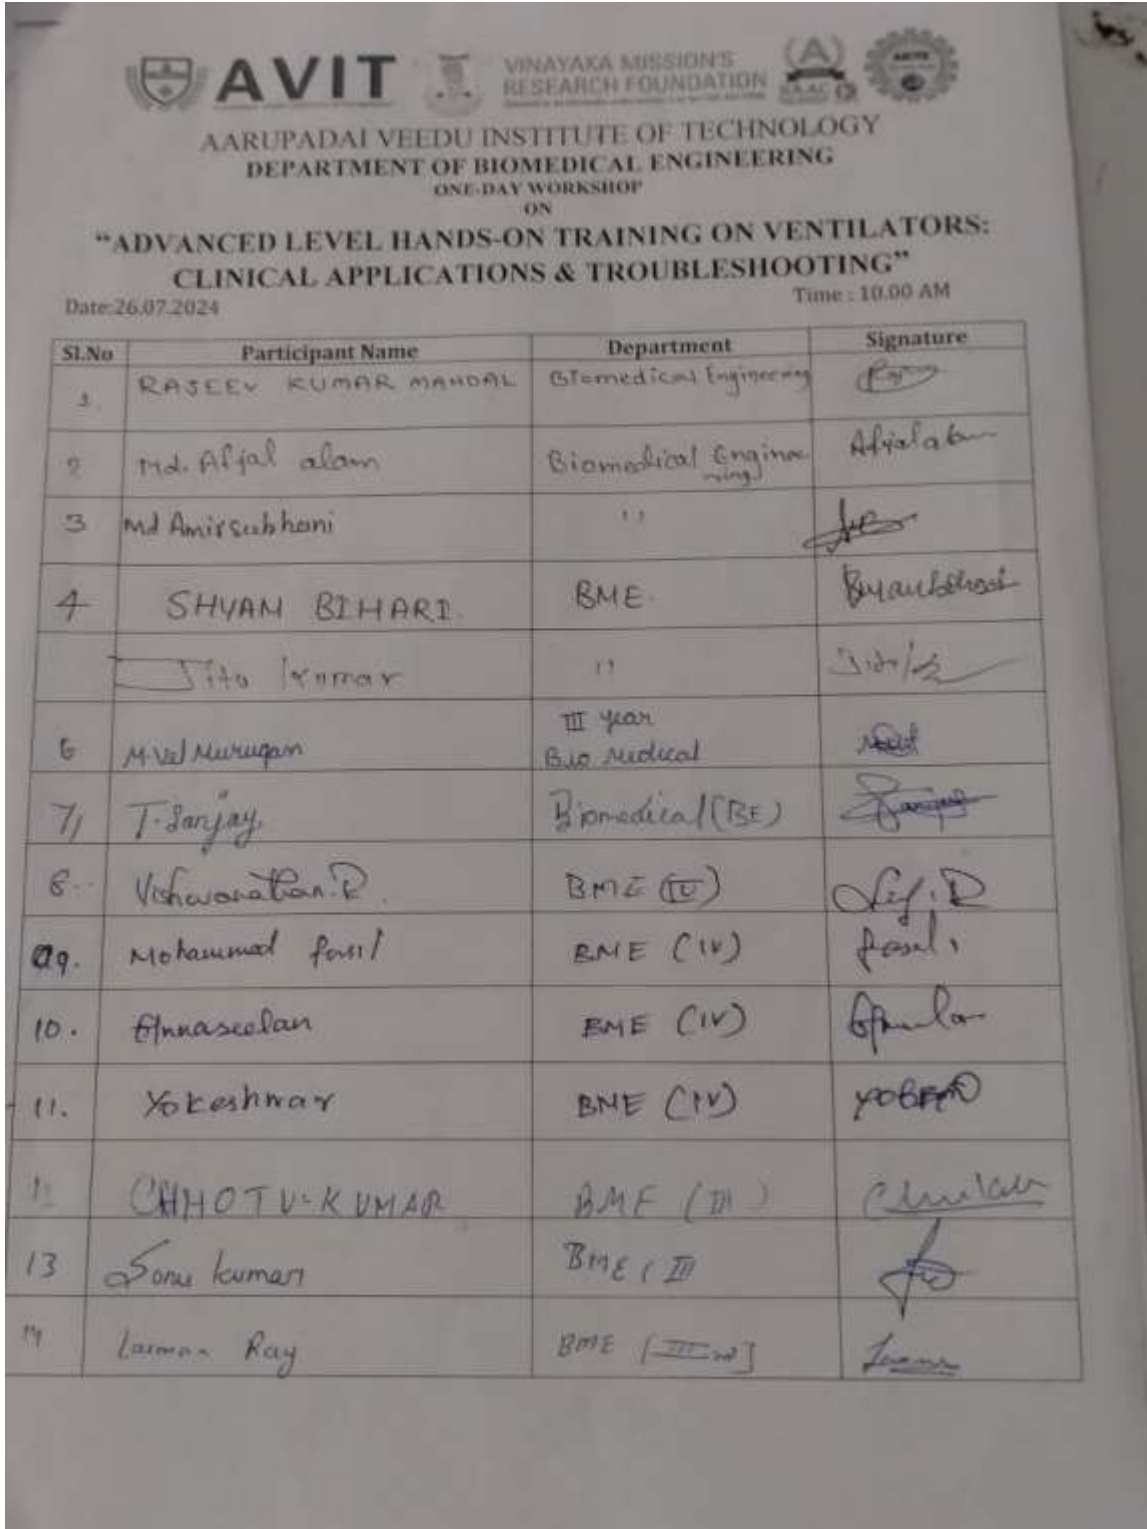 AVIT
VINAYAKA MISSION'S
RESEARCH FOUNDATION
AARUPADAI VEEDU INSTITUTE OF TECHNOLOGY
DEPARTMENT OF BIOMEDICAL ENGINEERING
ONE-DAY WORKSHOP
ON
“ADVANCED LEVEL HANDS-ON TRAINING ON VENTILATORS:
CLINICAL APPLICATIONS & TROUBLESHOOTING”
Date:26.07.2024 Time : 10.00 AM
Sl.No Participant Name Department Signature
1 RAJEEV KUMAR MANDAL Biomedical Engineering
2 Md. Afjal alam Biomedical Enginee
ring
3 Md Amirsubhani "
4 SHYAM BIHARI. BME.
Jitu Kumar "
6 M.Vel Murugan III year
Bio Medical
7, T. Sanjay Biomedical (BE)
8. Vishwanathan.R BME (IV)
09. Mohammed fasil BME (IV) fasil
10. Gnnaseelan BME (IV)
11. Yokeshwar BME (IV)
CHHOTU-KUMAR BME (III)
13 Sonu kumar BME (III
14 Laxman Ray BME